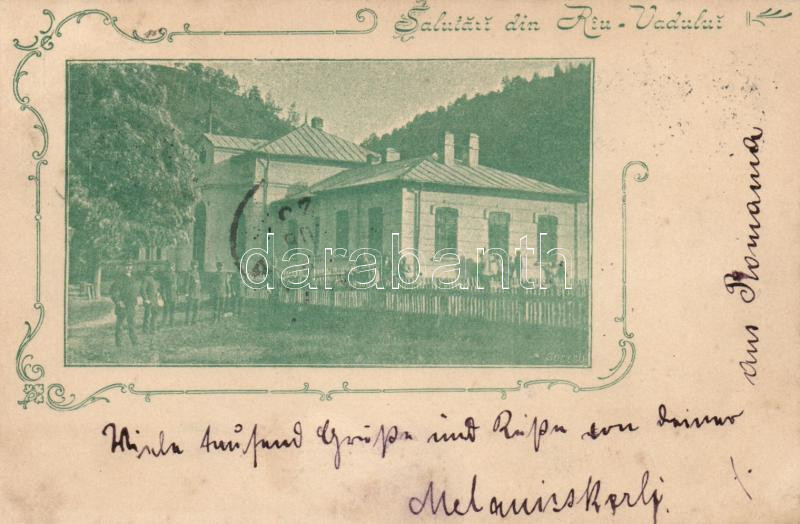 Salutări din Rîu-Vaduluĭ
darabanth
Viele tausend Grüße und Küße von deiner
aus Romania